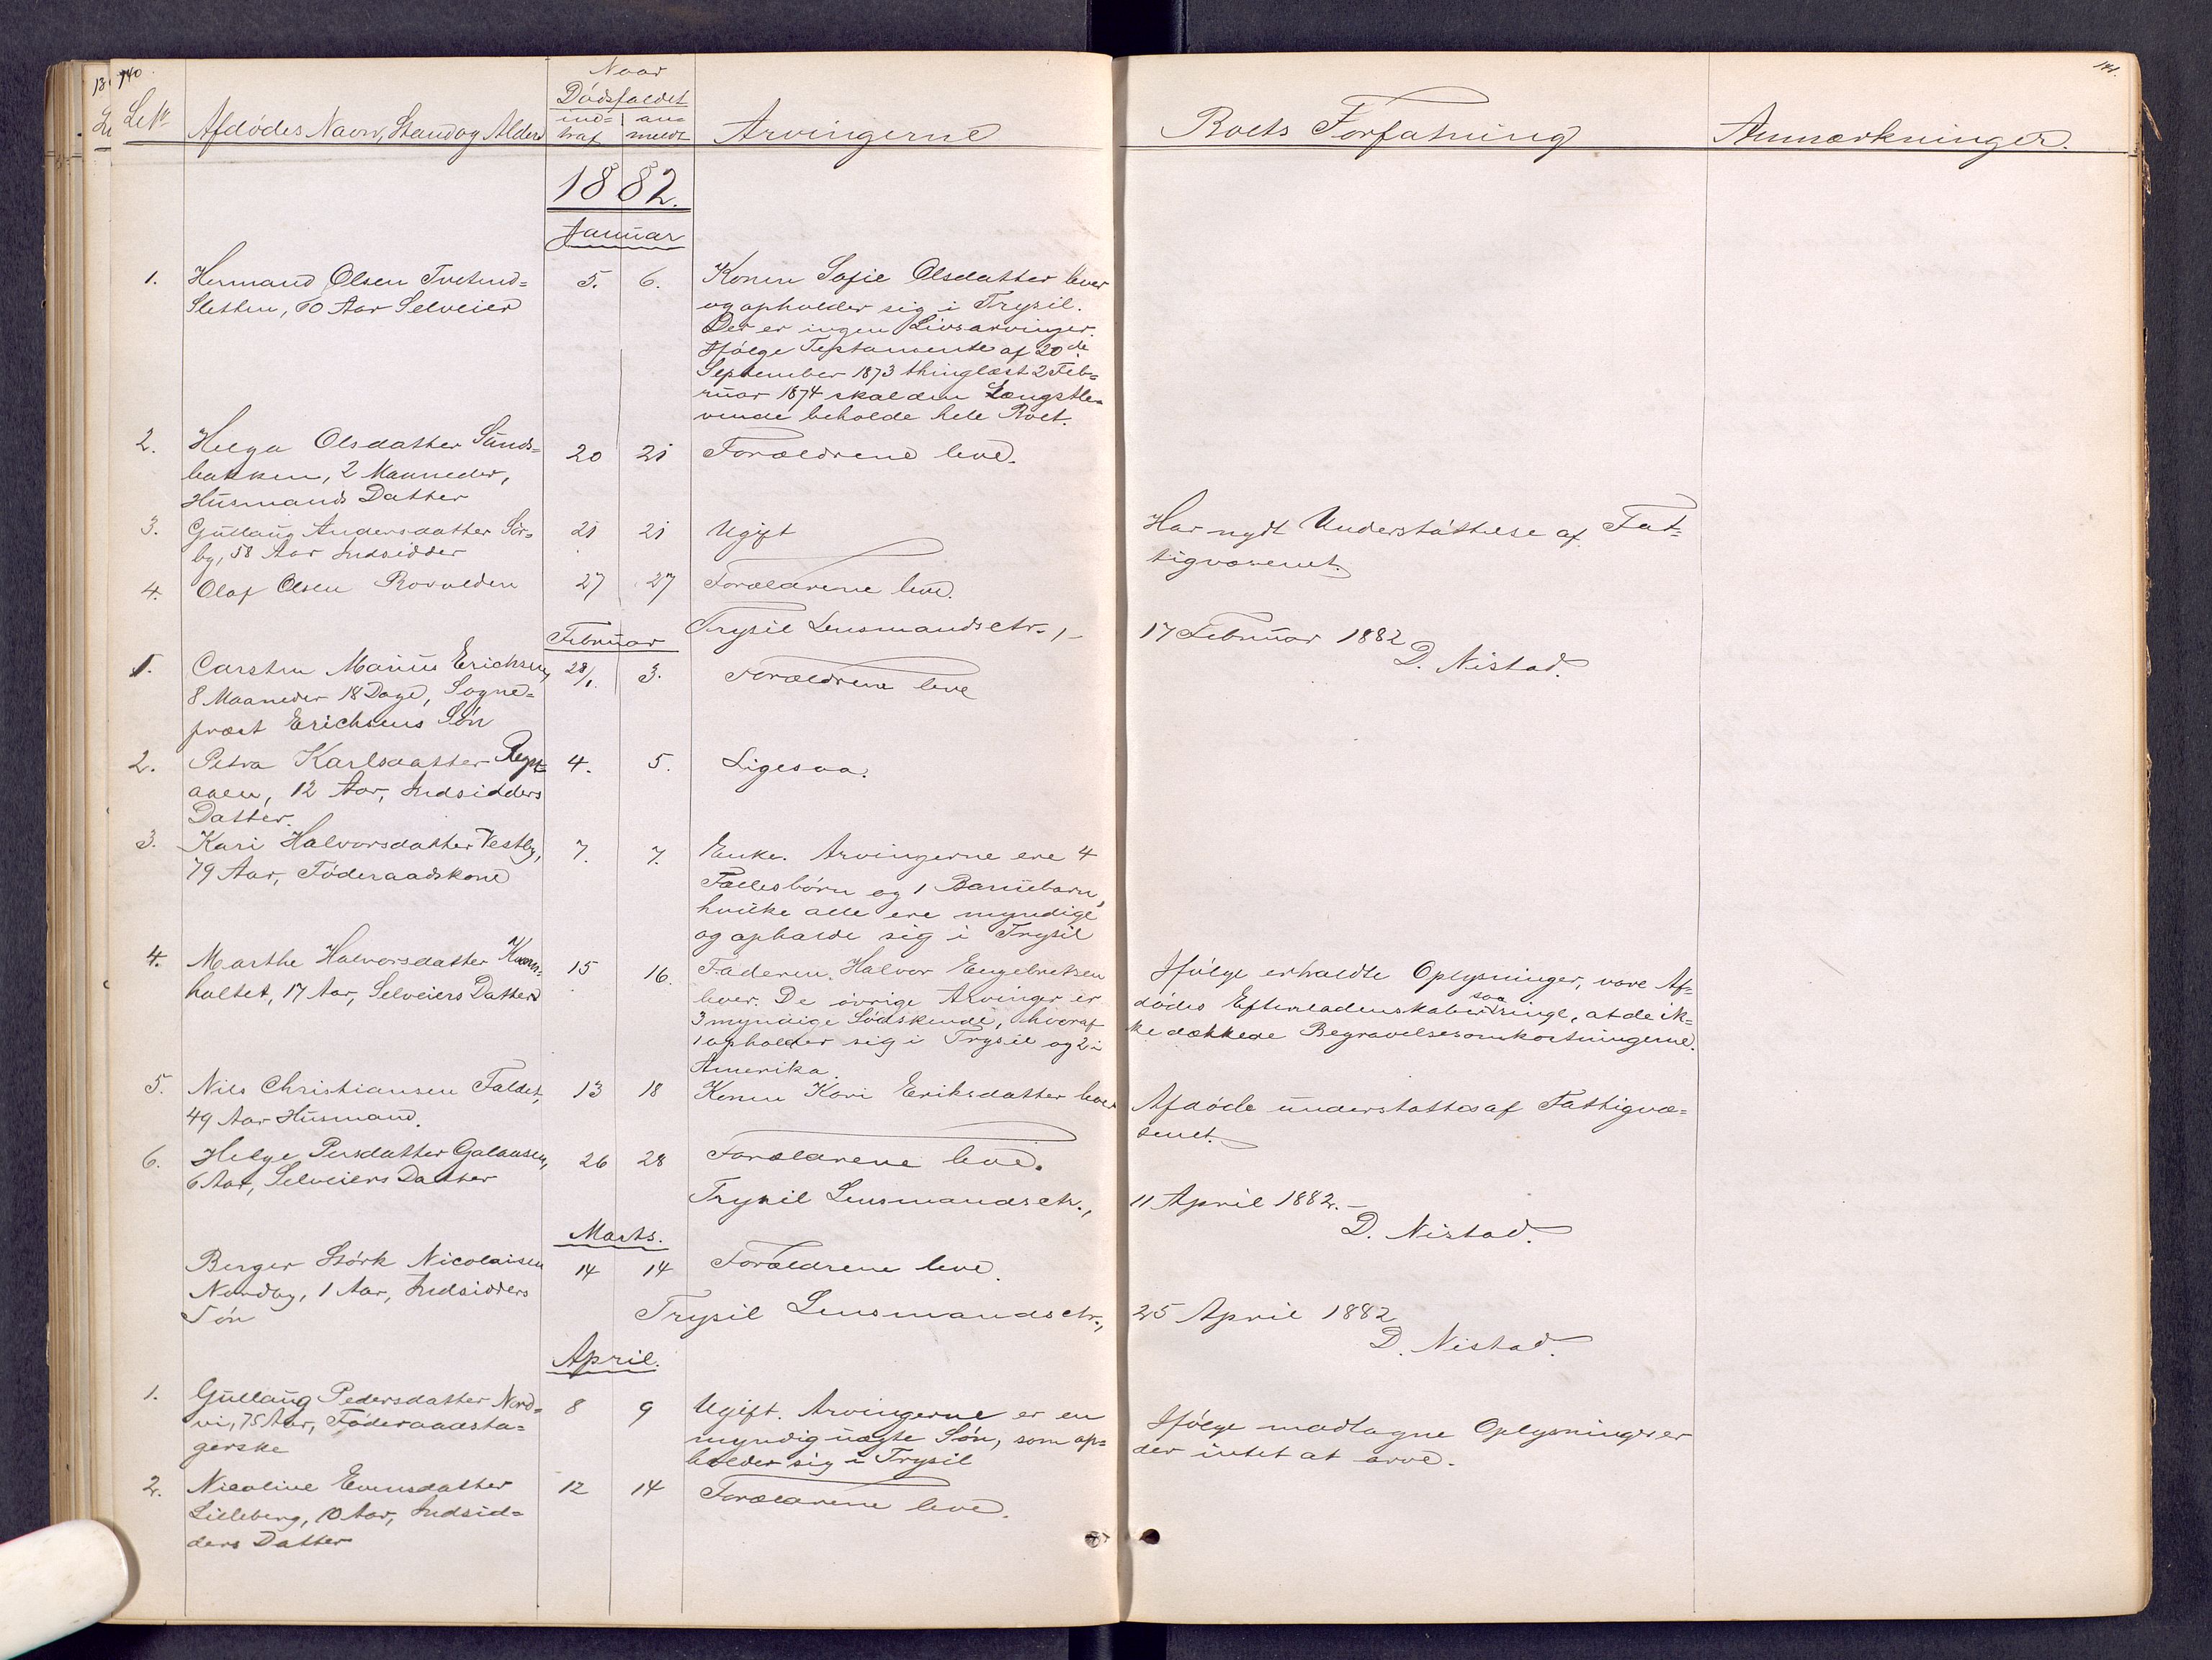 140
141.
Naar
Dödsfaldet
LN Afdödes Navn, Stand og Alder ind= traf an= meldt Arvingerne Boets Forfatning Anmærkninger.
1882.
Januar
1. Hermand Olsen Tvetend= 5. 6. Konen Sofie Olsdatter lever
Sletten, 60 Aar Selveier og opholder sig i Trysil.
Der er ingen Livsarvinger.
Ifölge Testamente af 20de
September 1873 thinglæst 2 Feb=
ruar 1874 skal den Længstle=
vende beholde hele Boet.
2. Helga Olsdatter Sunds= 20 21 Forældrene leve.
bakken, 2 Maaneder,
Husmands Datter
3. Gullaug Andersdatter Sör= 21 21 Ugift Har nydt Understöttelse af Fat=
by, 58 Aar Indsidder tigvæsenet.
4. Olaf Olsen Rovolden 27 27 Forældrene leve.
Februar Trysil Lensmandsetr., 17 Februar 1882
D. Nistad.
1. Carsten Marius Erichsen, 28/1. 3. Forældrene leve
8 Maaneder 18 Dage, Sogne=
præst Erichsens Sön
2. Petra Karlsdatter 4. 5. Ligesaa.
aaen, 12 Aar, Indsidders
Datter.
3. Kari Halvorsdatter Vestby, 7. 7. Enke. Arvingerne ere 4
79 Aar, Föderaadskone Fællesbörn og 1 Barnebarn,
hvilke alle ere myndige
og opholde sig i Trysil
4. Marthe Halvorsdatter Kværn= 15 16. Faderen Halvor Engebretsen Ifölge erholdte Oplysninger, vare Af=
holtet, 17 Aar, Selveiers Datter lever. De övrige Arvinger er dödes Efterladenskaber saa ringe, at de ik=
3 myndige Södskende, hvoraf ke dækkede Begravelsesomkostningerne.
1 opholder sig i Trysil og 2 i
Amerika.
5. Nils Christiansen Faldet, 13 18 Konen Kari Eriksdatter lever Afdöde understöttes af Fattigvæ=
49 Aar Husmand. senet.
6. Helge Persdatter Galaasen, 26 28 Forældrene leve.
6 Aar, Selveiers Datter
Trysil Lensmandsetr., 11 April 1882.
D. Nistad.
Marts.
Berger Störk Nicolaisen 14 14 Forældrene leve.
Nordby, 1 Aar, Indsidders
Sön
Trysil Lensmandsetr., 25 April 1882
D. Nistad.
April.
1. Gullaug Pedersdatter Nord= 8 9 Ugift. Arvingerne er en Ifölge modtagne Oplysninger er
vi, 75 Aar, Föderaadsta= myndig uægte Sön, som op= der intet at arve.
gerske holder sig i Trysil
2. Nicoline Evensdatter 12 14 Forældrene leve.
Lilleberg, 10 Aar, Indsid=
ders Datter